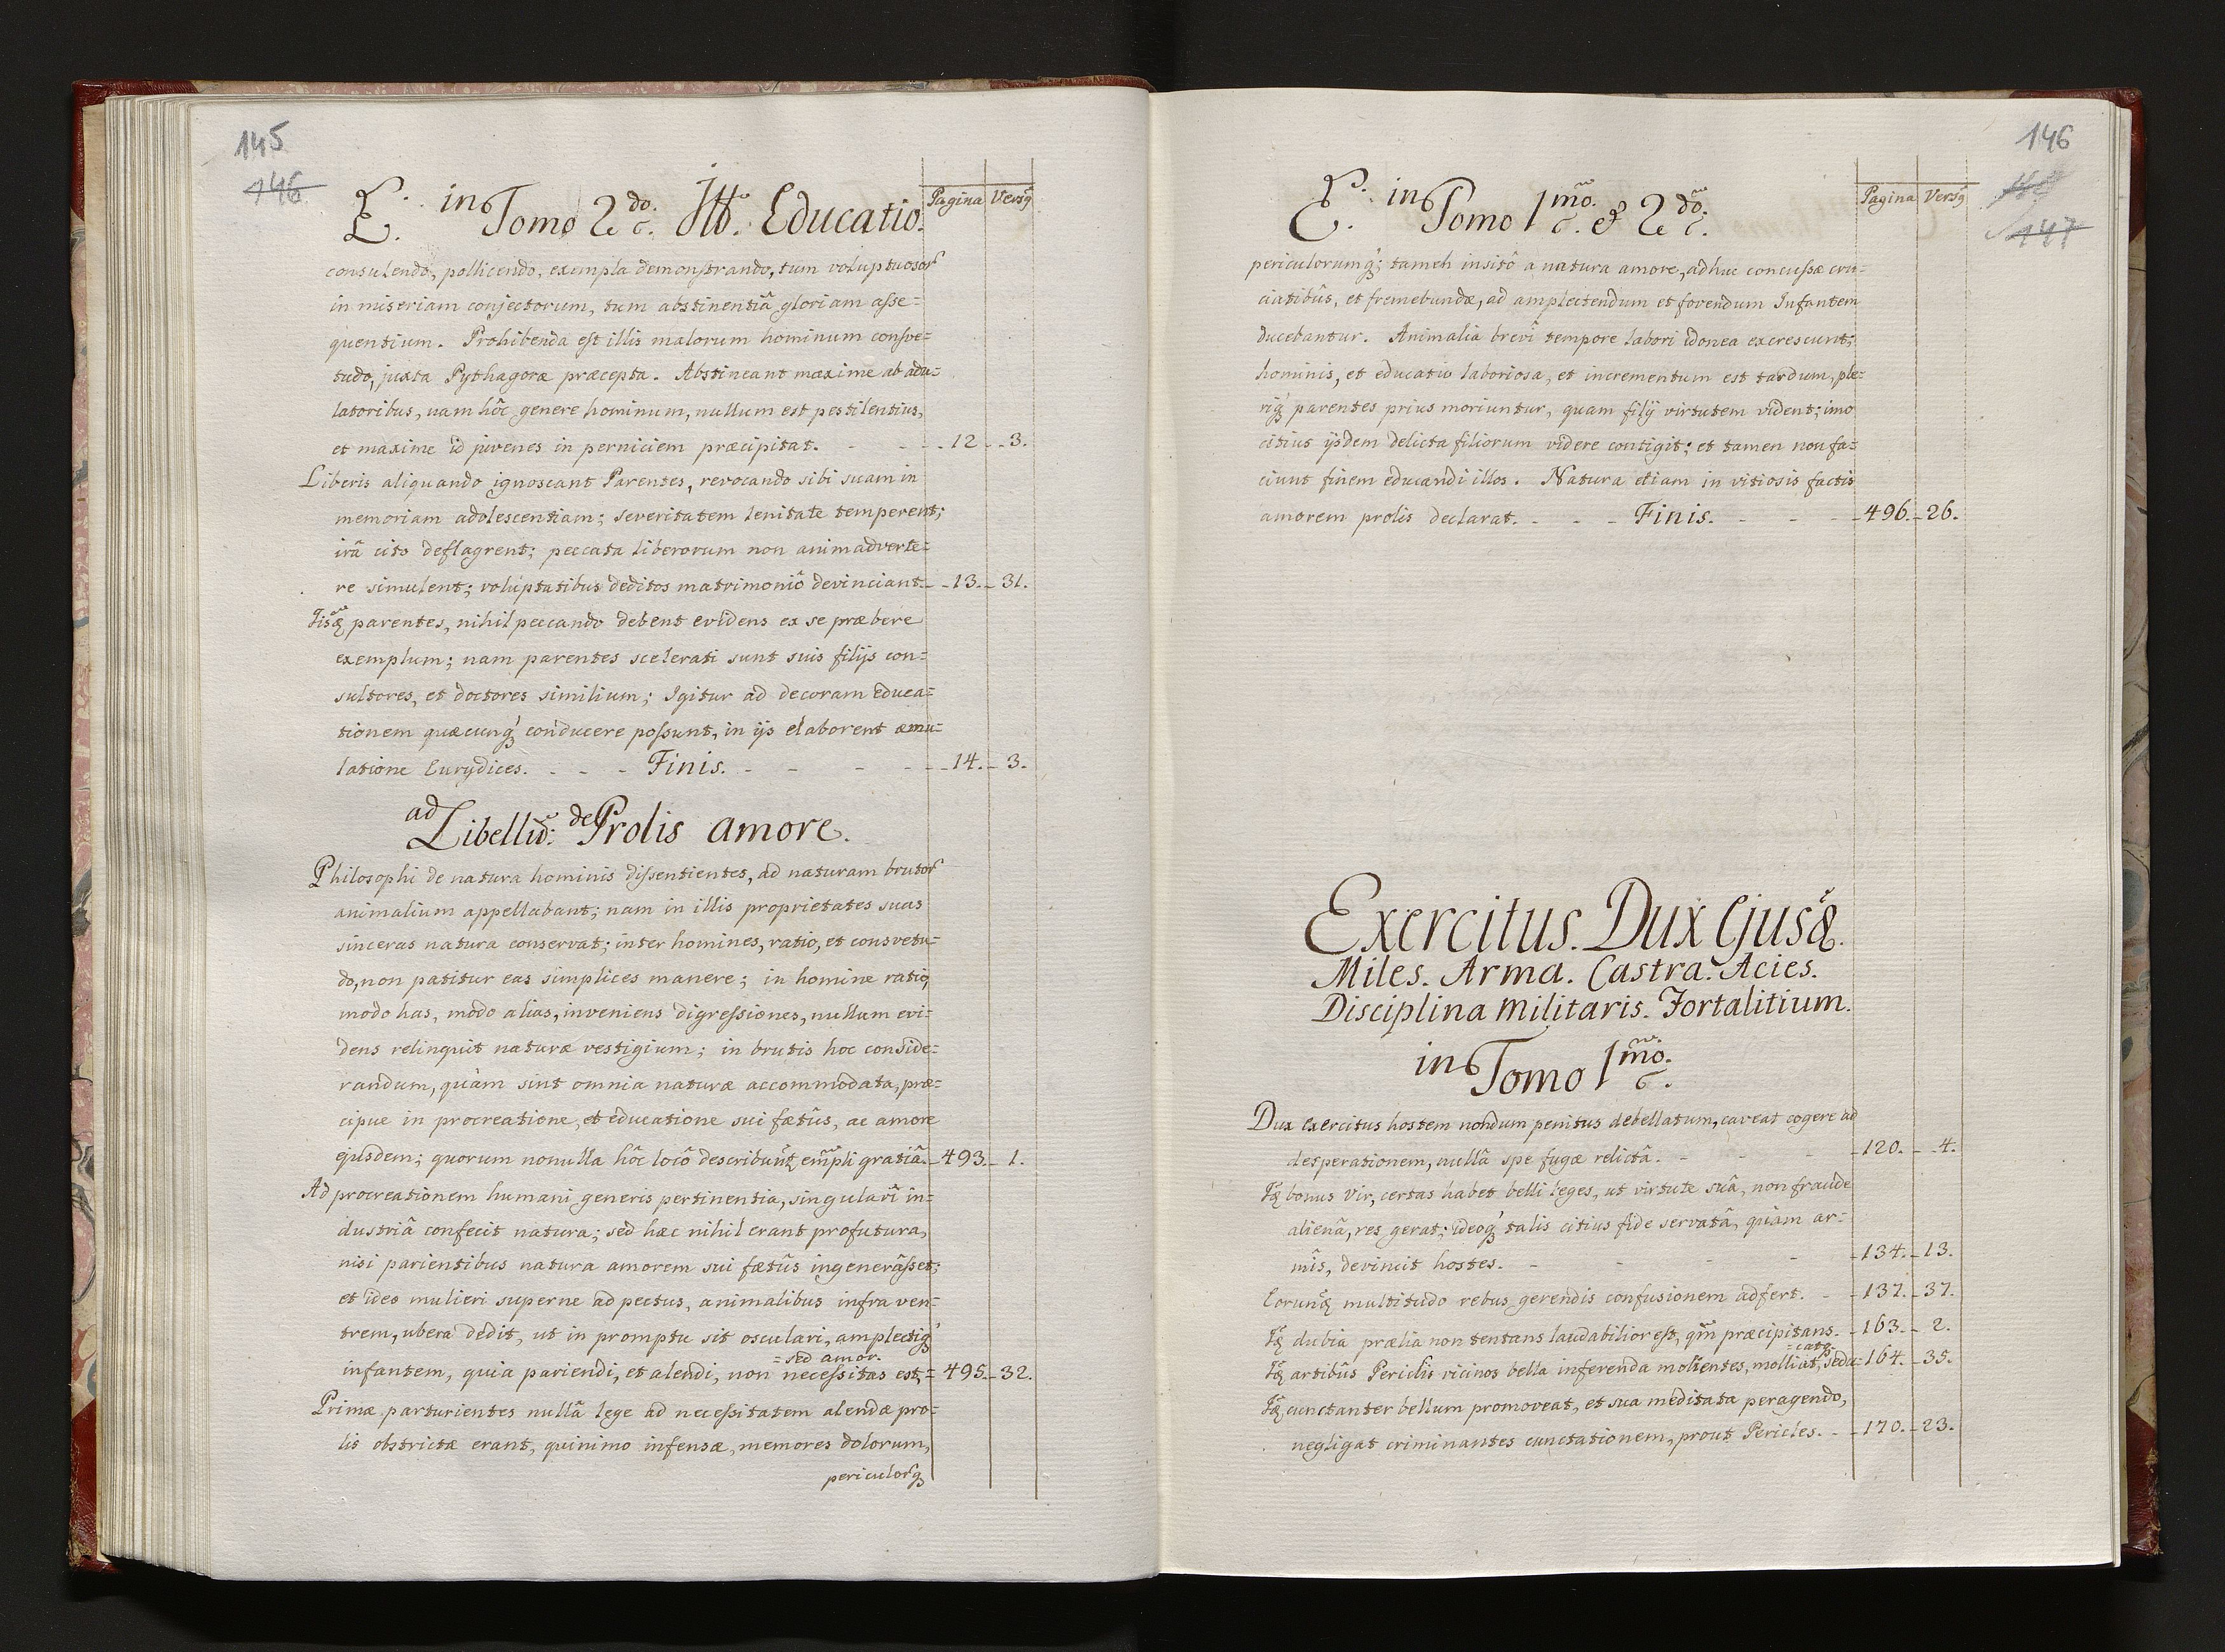 145
146
E. in Tomo 2do. Itt. Educatio.
Pagina Versq
consulendo, pollicendo, exempla demonstrando, tum voluptuosor
in miseriam conjectorum, tum abstinentiâ gloriam asse=
quentium. Prohibenda est illis malorum hominum consve=
tudo, juxta Pythagoræ præcepta. Abstineant maxime ab adu=
latoribus, nam hôc genere hominum, nullum est pestilentius,
et maxime id juvenes in perniciem præcipitat. - - - 12 - 3.
Liberis aliquando ignoscant Parentes, revocando sibi suam in
memoriam adolescentiam; severitatem lenitate temperent;
irâ cito deflagrent; peccata liberorum non animadverte=
re simulent; voluptatibus deditos matrimoniô devinciant. - 13. - 31.
parentes, nihil peccando debent evidens ex se præbere
exemplum; nam parentes scelerati sunt suis filijs con=
sultores, et doctores similium; Igitur ad decoram educa=
tionem quæcunq conducere possunt, in ijs elaborent æmu=
latione Eurydices. - - - Finis. - - - - 14. - 3.
ad Libellũ: de Prolis amore.
Philosophi de natura hominis dissentientes, ad naturam brutor
animalium appellabant; nam in illis proprietates suas
sinceras natura conservat; inter homines, ratio, et consvetu=
do, non patitur eas simplices manere; in homine ratio,
modo has, modo alias, inveniens digressiones, nullum evi=
dens relinquit naturæ vestigium; in brutis hoc conside=
randum, quàm sint omnia naturæ accommodata, præ=
cipue in procreatione, et educatione sui fætûs, ac amore
ejusdem; quorum nonulla hôc locô describunt, exmpli gratiâ. - 493. - 1.
Ad procreationem humani generis pertinentia, singulari in=
dustriâ confecit natura; sed hæc nihil erant profutura,
nisi parientibus natura amorem sui fætûs ingenerâsset;
et ideo mulieri superne ad pectus, animalibus infra ven=
trem, ubera dedit, ut in promptu sit osculari, amplectiq
= sed amor.
infantem, quia pariendi, et alendi, non necessitas est, = 495. - 32.
Primæ parturientes nullâ lege ad necessitatem alendæ pro=
lis obstrictæ erant, quinimo infensæ, memores dolorum,
periculorq
146
147
E. in Tomo 1mo. et 2do.
Pagina Versq
periculorumq; tameh insitô a natura amore, adhuc concussæ cru=
ciatibûs, et fremebundæ, ad amplectendum et fovendum Infantem
ducebantur. Animalia brevî tempore labori idonea excrescunt;
hominis, et educatio laboriosa, et incrementum est tardum, ple=
riq parentes prius moriuntur, quam filij virtutem vident; imo
citius ijsdem delicta filiorum videre contigit; et tamen non fa=
ciunt finem educandi illos. Natura etiam in vitiosis factis
amorem prolis declarat. - - - Finis. - - - 496. - 26.
Exercitus. Dux Ejusq.
Miles. Arma. Castra. Acies.
Disciplina Militaris. Fortalitium.
in Tomo 1mo.
Dux Exercitus hostem nondum penitus debellatum, caveat cogere ad
desperationem, nullâ spe fugæ relictâ. - - - 120. - 4.
bonus Vir, certas habet belli leges, ut virtute suâ, non fraude
alienâ, res gerat; ideoq talis citius fide servatâ, quàm ar=
mîs, devincit hostes. - - - - 134. - 13.
multitudo rebus gerendis confusionem adfert. - - 137. - 37.
dubia prælia non tentans laudabilior est, qm præcipitans. - 163. - 2.
= catq.
artibûs Periclis vicinos bella inferenda molientes, molliat, seda= 164. - 35.
cunctanter bellum promoveat, et sua meditata peragendo,
negligat criminantes cunctationem, prout Pericles. - - 170. - 23.